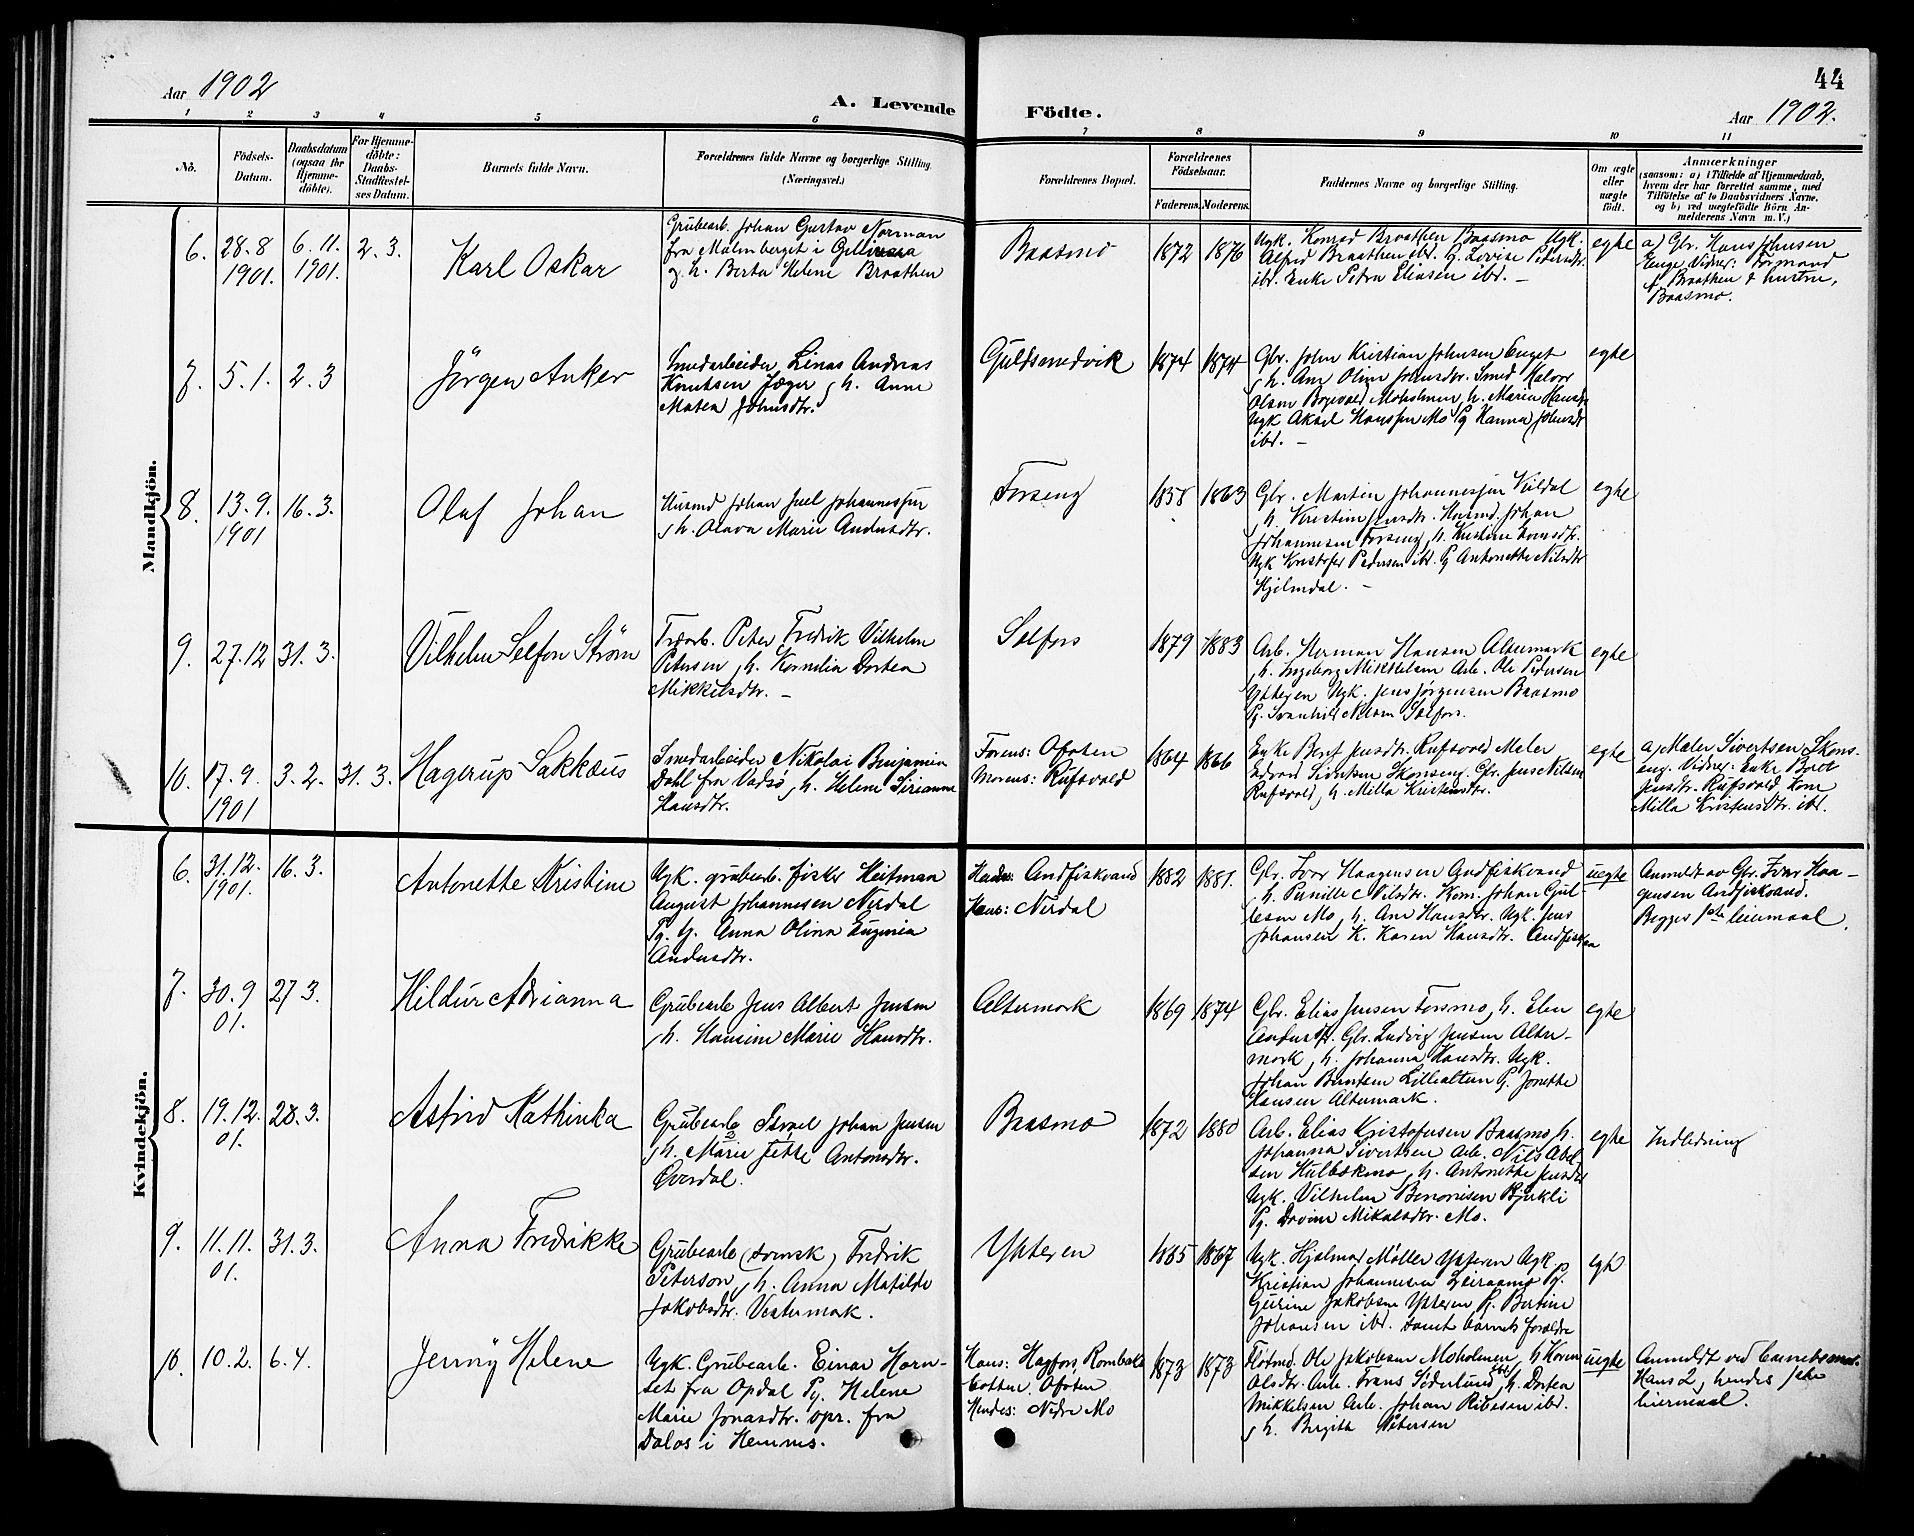 44
Aar 1902
A. Levende
Födte.
Aar 1902.
1 2 3 4 5 6 7 8 9 10 11
No.
Födsels-
Datum.
Daabsdatum
(ogsaa for
Hjemme-
döbte).
For Hjemme-
döbte:
Daabs-
Stadfæstel-
ses Datum.
Barnets fulde Navn.
Forældrenes fulde Navne og borgerlige Stilling
(Næringsvei.)
Forældrenes Bopæl.
Forældrenes
Födselsaar.
Faderens.
Moderens.
Faddernes Navne og borgerlige Stilling.
Om ægte
eller
uægte
födt.
Anmærkninger
(saasom: a) i Tilfælde af Hjemmedaab,
hvem der har forrettet samme, med
Tilföielse af to Daabsvidners Navne,
og b) ved uægtefödte Börn An-
melderens Navn m. V.)
Mandkjön.
6. 28.8
1901.
6.11.
1901.
2.3.
Karl Oskar
Grubearb. Johan Gustav Norman
fra Malmberget i Gellivara
og h. Berta Helene Braathen
Baasmo
1872 1876
Ugk. Konrad Braathen Baasmo Ugk.
Alfred Braathen ibd. G. Lovise Pedersdtr.
ibr. Enke Petra Eliasen ibr. –
egte
a) Gbr. Hans Johnsen
Enge Vidner: Formand
Braathen & hustru,
Baasmo.
7. 5.1. 2.3
Jörgen Anker
Smedarbeider Linas Andreas
Knutsen Jæger, h. Anne
Matea Johnsdtr.
Guldsmedvik
1874 1874
Gbr. John Kristian Johnsen Enget
, h. Ane Oline Johnsdtr. Smed Halvor
Olsen Moholmen, h. Marie Hansdtr
Ugk Aksel Hanssen Mo Pg Hanna Johnsdtr
ibr. –
egte
8. 13.9.
1901
16.3.
Olaf Johan
Husmd Johan Juel Johannessen
, h. Olava Marie Andersdtr.
Forseng
1858 1863
Gbr. Martin Johannessen Kildal
, h. Kristine Jensdtr. Husmd. Johan
Johannesen Forseng, h. Kristine
Ugk Kristofer Pedersen ibr. Pg Antonette Nilsdtr
Hjelmdal. –
egte
9. 27.12 31.3.
Vilhelm Selfon Strøm
Peter Fredrik Vilhelm
Petersen, h. Kornelia Dortea
Mikkelsdtr. –
Selfors
1879 1883
Arb. Herman Hansen Altermark
, h. Ingeborg Mikkelsen Arb. Ole Pedersen
Ytteren Ugk. Jens Jørgensen Baasmo
Pg. Svanhild Selfors.
egte
10. 17.9.
1901
3.2. 31.3.
Hagerup Sakkæus
Smedarbeider Nikolai Benjamin
Dahl fra Vadsø, h. Helene Sirianne
Hansdtr.
Farens: Ofoten
Morens: Rufsvold
1864 1866
Enke Berit Jensdtr. Rufsvold Maler
Edvard Sivertsen Skonseng. Gbr. Jens Nilsen
Rufsvold, h. Milla Kristensdtr.
egte
a) Maler Sivertsen Skons-
eng. Vidner: Enke Berit
Jensdtr. Rufsvold Kone
Milla Kristensdtr. ibd.
Kvindekjön.
6. 31.12.
1901.
16.3.
Antonette Kristine
Ugk. grubearb. fisker Heitman
August Johannesen Nerdal
Pg. G. Anna Olina Euginia
Andersdtr.
Andfiskvand
Hans: Nerdal
1882 1881.
Gbr. Ivar Haagensen Andfiskvand
, h. Pernille C Nilsdtr. Kom. Johan Gul-
lesen Mo, h. Ane Hansdtr. Ugk. Jens
Johansen K. Karen Hansdtr. Andfiskvn
uegte
Anmeldt av Gbr. Ivar Haa-
gensen Andfiskvand.
Begges 1ste leiermaal.
7. 30.9
01.
27.3.
Hildur Adrianna
Grubearb Jens Albert Jensen
, h. Hansine Marie Hansdtr.
Altermark
1869 1874
Gbr. Elias Jensen Forsmo, h. Elen
Andersdtr. Gbr. Ludvig Jensen Alter-
mark, h. Johanna Hansdtr. Ugk.
Johan Berntsen Lillealteren Pg. Jonette
Hansen Altermark.
egte
8. 19.12.
01.
28.3.
Astrid Kathinka
Grubearb Israel Johan Jensen
, h. Marie Jette Antonsdtr.
Overdal.
Baasmo
1872 1880
Arb. Elias Kristofersen Baasmo h.
Johanna Sivertsen Arb. Nils Abel
sen Hulbækmo, h. Antonette Jensdtr
Ugk. Vilhelm Benonisen Bjerkli
Pg. Dorine Mikalsdtr. Mo.
egte
Indledning
9. 11.11.
01.
31.3.
Anna Fredrikke
Grubearb (svensk) Fredrik
Peterson, h. Anna Matilde
Jakobsdtr. Vestermark.
Ytteren
1865 1867
Ugk. Hjalmar Møller Ytteren Ugk
Kristian Johannesen Leiraamo Pg.
Gurine Jakobsen Ytteren Pg. Bertine
Johansen ibr. samt barnets forældre
egte
10. 10.2. 6.4.
Jenny Helene
Ugk. Grubearb. Einar Horn-
set fra Opdal Pg. Helene
Marie Jonasdtr. opr. fra
Dalos i Hemnes.
Hans: Hagfors Rombaks-
botten Ofoten
Hendes: Nedre Mo
1873 1873
Flötmd. Ole Jakobsen Moholmen, h Karen
Olsdtr. Arb. Frans Söderlund ibr, h. Dortea
Mikkelsen Arb. Johan Ribesen ibr.
, h. Birgita Petersen
uegte
Anmeldt ved barnets mor.
Hans 2, hendes 1ste
leiermaal.